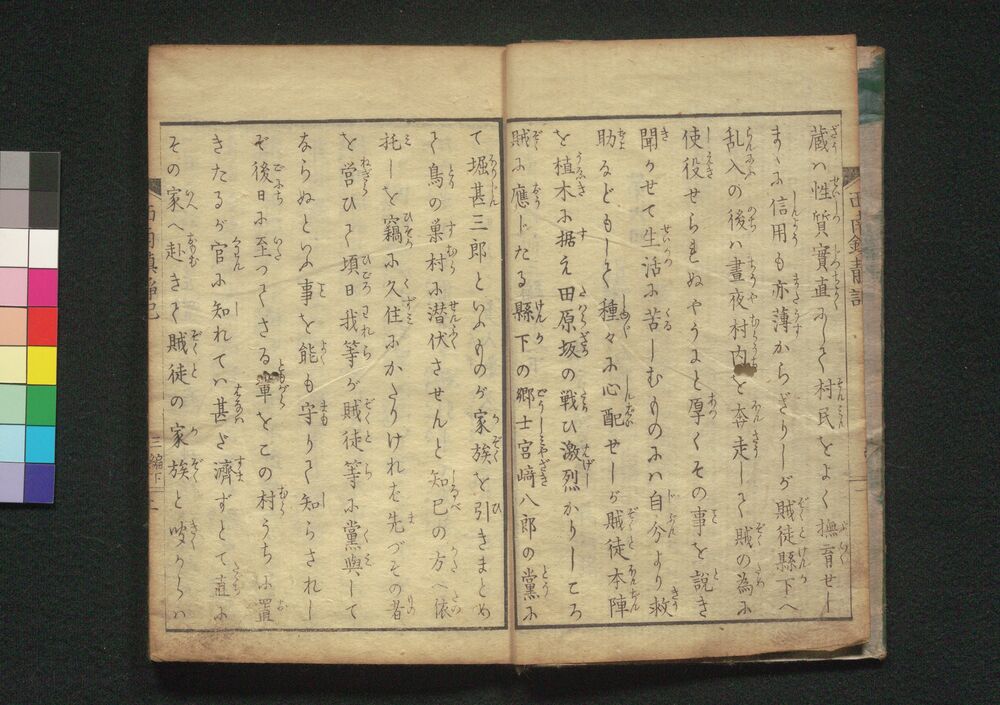 蔵ハ性質實直にして村民をよく撫育せし
まゝに信用も亦薄からざりしが賊徒縣下へ
乱入の後ハ晝夜村内を奔走して賊の為に
使役せられぬやうにと厚くその事を説き
聞かせて生活に苦しむものにハ自分より救
助なども して種々に心配せしが賊徒本陣
を植木に据え田原坂の戦ひ激烈かりしころ
賊に應じたる縣下の郷士宮﨑八郎の黨に
て堀甚三郎といふものが家族を引きまとめ
て鳥の巣村に潜伏させんと知己の方へ依
托しを竊に久住にかたりけれバ先づその者
を営ひて頃日我等が賊徒等に黨與して
ならぬといふ事を能も守りて知らされし
ぞ後日に至つてさる輩をこの村うちに置
きたるが官に知れてハ甚だ濟ずとて直に
その家へ赴きて賊徒の家族と
三編下